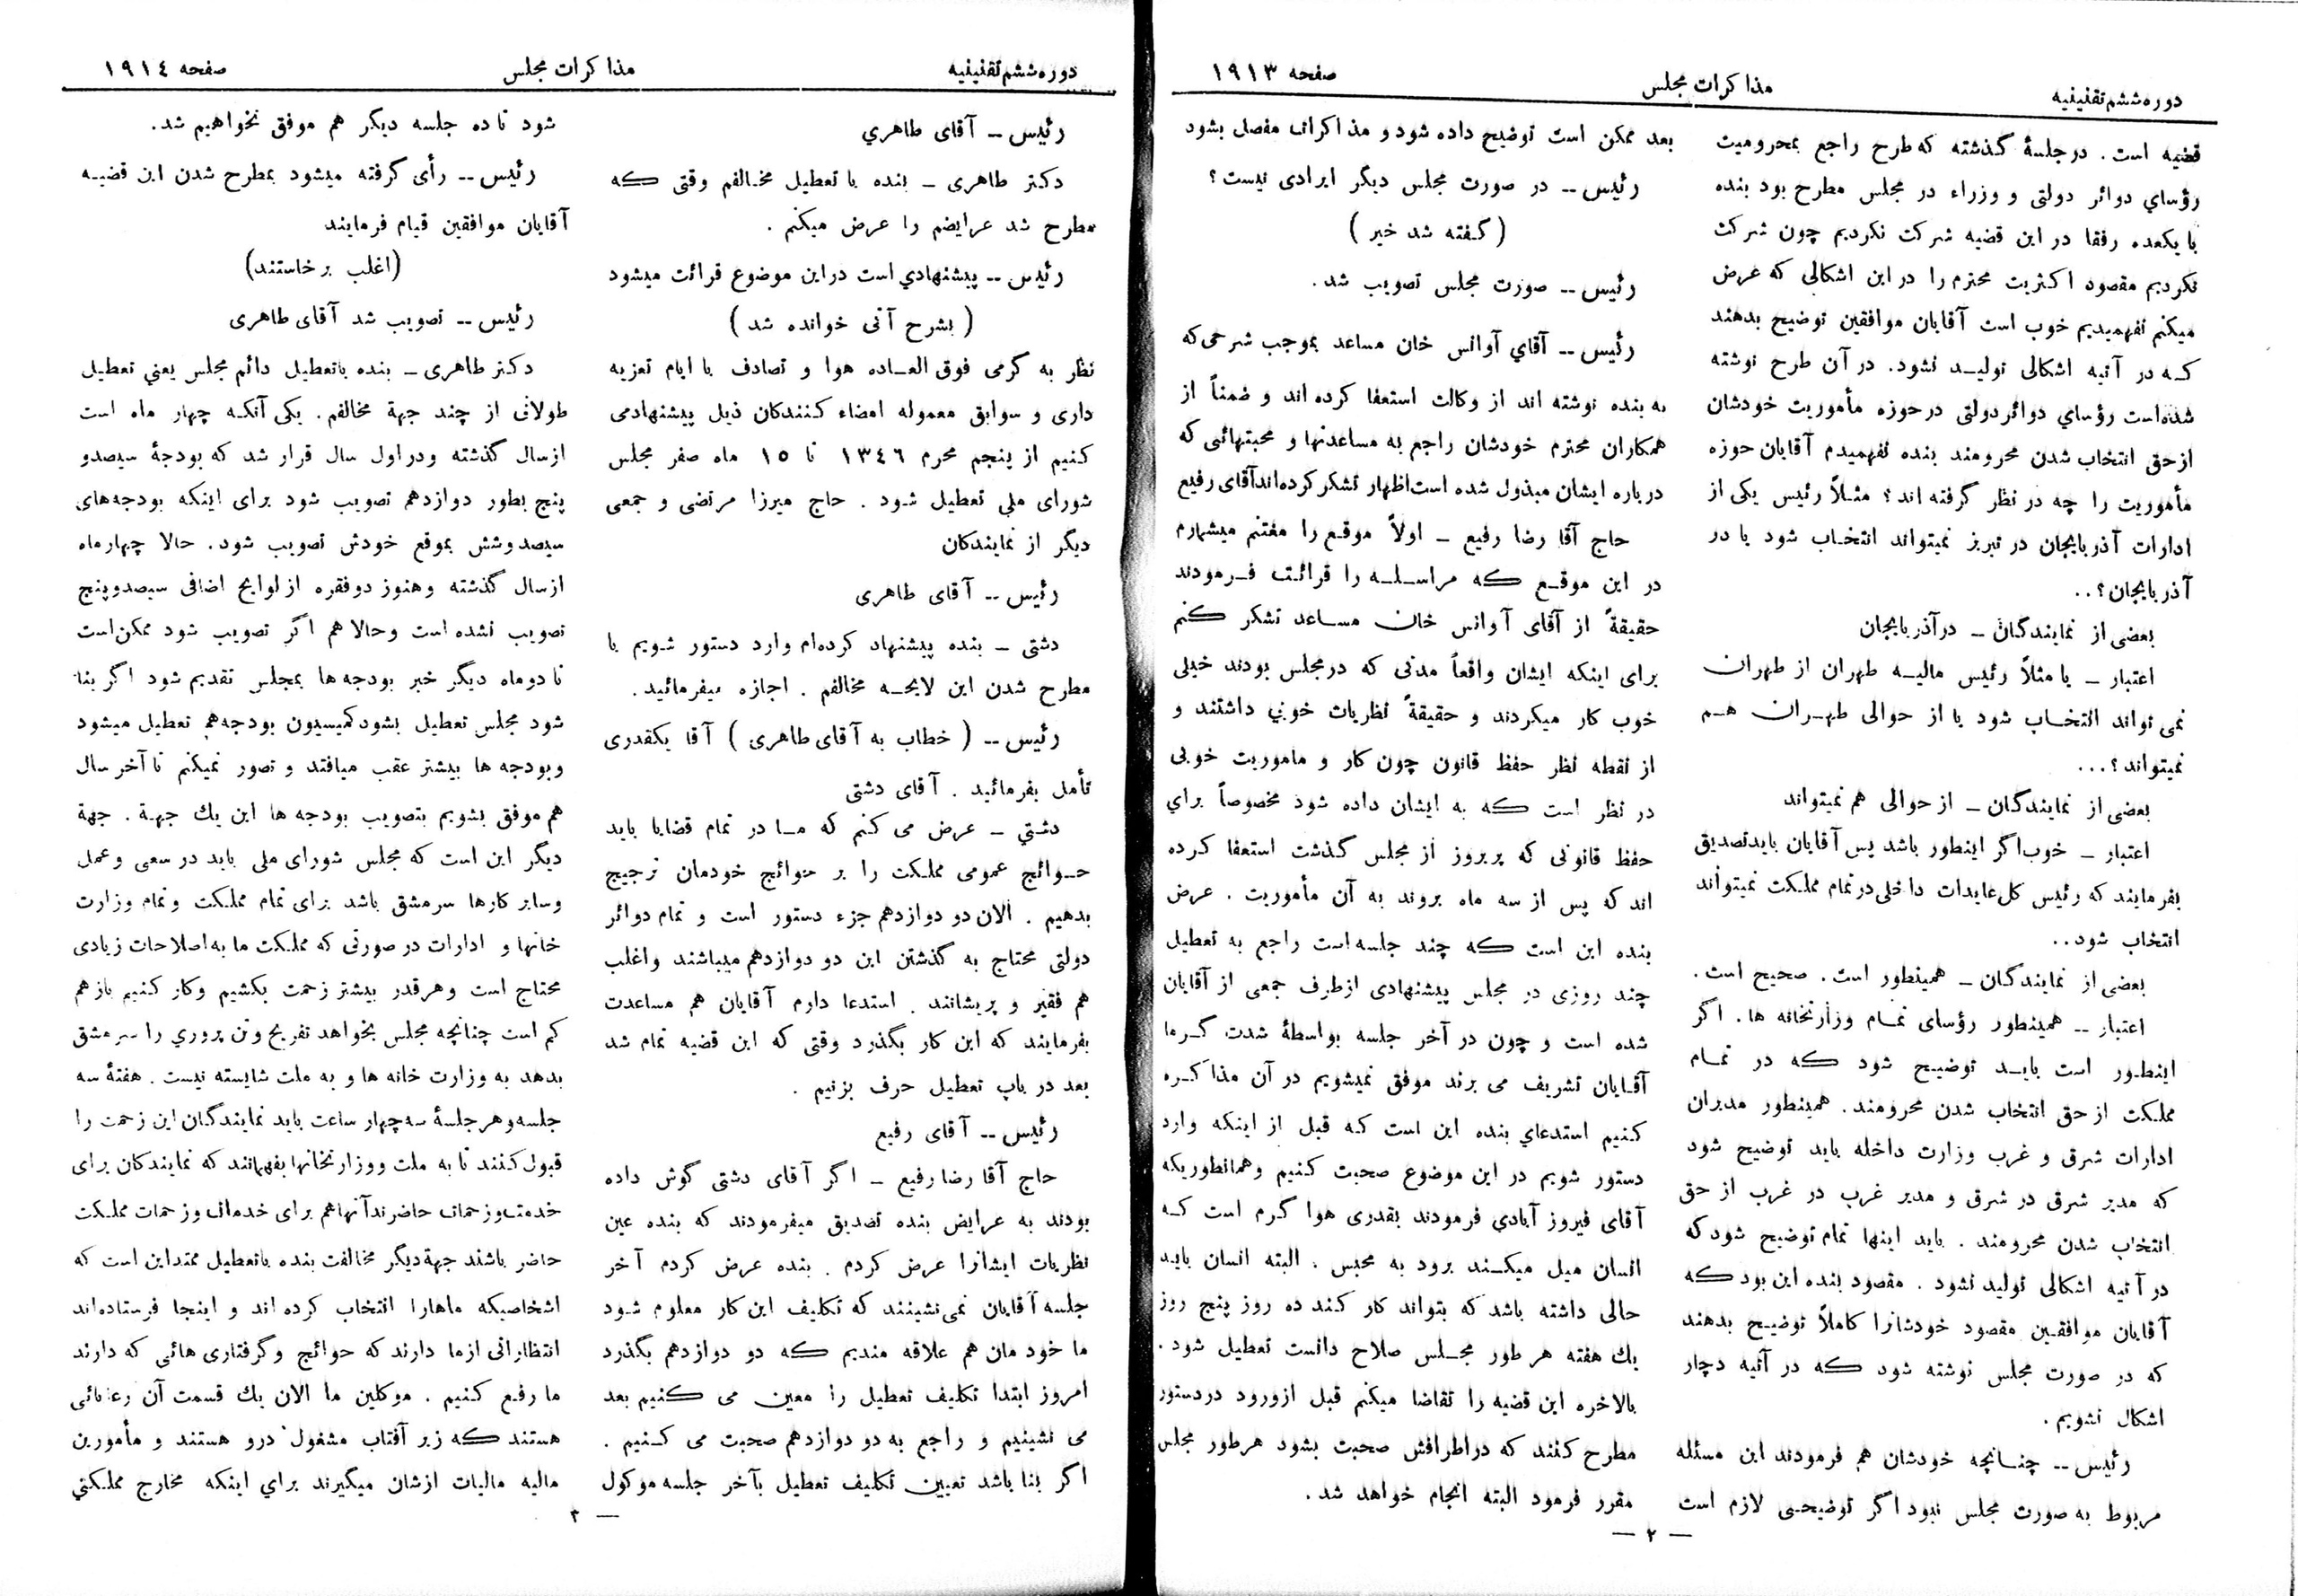 دوره ششم تقنینیه
مذاکرات مجلس
صفحه ۱۹۱۳
قضیه است . در جلسهٔ گذشته که طرح راجع بمحرومیت
رؤسای دوائر دولتی و وزراء در مجلس مطرح بود بنده
با یکعده رفقا در این قضیه شرکت نکردیم چون شرکت
نکردیم مقصود اکثریت محترم را در این اشکالی که عرض
میکنم نفهمیدیم خوب است آقایان موافقین توضیح بدهند
که در آتیه اشکالی تولید نشود. در آن طرح نوشته
شده‌است رؤسای دوائر دولتی در حوزه مأموریت خودشان
از حق انتخاب شدن محرومند بنده نفهمیدم آقایان حوزه
مأموریت را چه در نظر گرفته اند ؟ مثلاً رئیس یکی از
ادارات آذربایجان در تبریز نمیتواند انتخاب شود یا در
آذربایجان؟..
بعضی از نمایندگان ــ در آذربایجان
اعتبار ــ یا مثلاً رئیس مالیه طهران از طهران
نمی تواند انتخاب شود یا از حوالی طهران هم
نمیتواند ؟ ...
بعضی از نمایندگان ــ از حوالی هم نمیتواند
اعتبار ــ خوب اگر اینطور باشد پس آقایان باید تصدیق
بفرمایند که رئیس کل عایدات داخلی در تمام مملکت نمیتواند
انتخاب شود..
بعضی از نمایندگان ــ همینطور است. صحیح است.
اعتبار ــ همینطور رؤسای تمام وزارتخانه ها. اگر
اینطور است باید توضیح شود که در تمام
مملکت از حق انتخاب شدن محرومند. همینطور مدیران
ادارات شرق و غرب وزارت داخله باید توضیح شود
که مدیر شرق در شرق و مدیر غرب در غرب از حق
انتخاب شدن محرومند . باید اینها تمام توضیح شود که
در آتیه اشکالی تولید نشود . مقصود بنده این بود که
آقایان موافقین مقصود خودشانرا کاملاً توضیح بدهند
که در صورت مجلس نوشته شود که در آتیه دچار
اشکال نشویم .
رئیس ــ چنانچه خودشان هم فرمودند این مسئله
مربوط به صورت مجلس نبود اگر توضیحی لازم است
بعد ممکن است توضیح داده شود و مذاکرات مفصل بشود
رئیس ــ در صورت مجلس دیگر ایرادی نیست ؟
( گفته شد خیر )
رئیس ــ صورت مجلس تصویب شد .
رئیس ــ آقای آوانس خان مساعد بموجب شرحی که
به بنده نوشته اند از وکالت استعفا کرده اند و ضمناً از
همکاران محترم خودشان راجع به مساعدتها و محبتهائی که
درباره ایشان مبذول شده است اظهار تشکر کرده‌اند آقای رفیع
حاج آقا رضا رفیع ــ اولاً موقع را مغتنم میشمارم
در این موقع که مراسله را قرائت فرمودند
حقیقةً از آقای آوانس خان مساعد تشکر کنم
برای اینکه ایشان واقعاً مدتی که در مجلس بودند خیلی
خوب کار میکردند و حقیقةً نظریات خوبی داشتند و
از نقطه نظر حفظ قانون چون کار و ماموریت خوبی
در نظر است که به ایشان داده شود مخصوصاً برای
حفظ قانونی که پریروز از مجلس گذشت استعفا کرده
اند که پس از سه ماه بروند به آن مأموریت . عرض
بنده این است که چند جلسه است راجع به تعطیل
چند روزی در مجلس پیشنهادی از طرف جمعی از آقایان
شده است و چون در آخر جلسه بواسطهٔ شدت گرما
آقایان تشریف می برند موفق نمیشویم در آن مذاکره
کنیم استدعای بنده این است که قبل از اینکه وارد
دستور شویم در این موضوع صحبت کنیم و همانطوریکه
آقای فیروز آبادی فرمودند بقدری هوا گرم است که
انسان میل میکند برود به محبس . البته انسان باید
حالی داشته باشد که بتواند کار کند ده روز پنج روز
یك هفته هر طور مجلس صلاح دانست تعطیل شود .
بالاخره این قضیه را تقاضا میکنم قبل از ورود در دستور
مطرح کنند که در اطرافش صحبت بشود هر طور مجلس
مقرر فرمود البته انجام خواهد شد .
— ۲ —
دوره ششم تقنینیه
مذاکرات مجلس
صفحه ۱۹۱٤
رئیس ــ آقای طاهری
دکتر طاهری ــ بنده با تعطیل مخالفم وقتی که
مطرح شد عرایضم را عرض میکنم .
رئیس ــ پیشنهادی است در این موضوع قرائت میشود
( بشرح آتی خوانده شد )
نظر به گرمی فوق العاده هوا و تصادف با ایام تعزیه
داری و سوابق معموله امضاء کنندگان ذیل پیشنهاد می
کنیم از پنجم محرم ۱۳٤٦ تا ۱٥ ماه صفر مجلس
شورای ملی تعطیل شود . حاج میرزا مرتضی و جمعی
دیگر از نمایندگان
رئیس ــ آقای طاهری
دشتی ــ بنده پیشنهاد کرده‌ام وارد دستور شویم با
مطرح شدن این لایحه مخالفم . اجازه میفرمائید .
رئیس ــ ( خطاب به آقای طاهری ) آقا یکقدری
تأمل بفرمائید . آقای دشتی
دشتی ــ عرض می کنم که ما در تمام قضایا باید
حوائج عمومی مملکت را بر حوائج خودمان ترجیح
بدهیم . الان دو دوازدهم جزء دستور است و تمام دوائر
دولتی محتاج به گذشتن این دو دوازدهم میباشند و اغلب
هم فقیر و پریشانند . استدعا دارم آقایان هم مساعدت
بفرمایند که این کار بگذرد وقتی که این قضیه تمام شد
بعد در باب تعطیل حرف بزنیم .
رئیس ــ آقای رفیع
حاج آقا رضا رفیع ــ اگر آقای دشتی گوش داده
بودند به عرایض بنده تصدیق میفرمودند که بنده عین
نظریات ایشانرا عرض کردم . بنده عرض کردم آخر
جلسه آقایان نمی نشینند که تکلیف این کار معلوم شود
ما خودمان هم علاقه مندیم که دو دوازدهم بگذرد
امروز ابتدا تکلیف تعطیل را معین می کنیم بعد
می نشینیم و راجع به دو دوازدهم صحبت می کنیم .
اگر بنا باشد تعیین تکلیف تعطیل بآخر جلسه موکول
شود تا ده جلسه دیگر هم موفق نخواهیم شد.
رئیس ــ رأی گرفته میشود بمطرح شدن این قضیه
آقایان موافقین قیام فرمایند
(اغلب برخاستند)
رئیس ــ تصویب شد آقای طاهری
دکتر طاهری ــ بنده با تعطیل دائم مجلس یعنی تعطیل
طولانی از چند جهة مخالفم. یکی آنکه چهار ماه است
از سال گذشته و در اول سال قرار شد که بودجهٔ سیصدو
پنج بطور دوازدهم تصویب شود برای اینکه بودجه‌های
سیصدوشش بموقع خودش تصویب شود. حالا چهار ماه
از سال گذشته و هنوز دو فقره از لوایح اضافی سیصدوپنج
تصویب نشده است و حالا هم اگر تصویب شود ممکن است
تا دو ماه دیگر خبر بودجه ها بمجلس تقدیم شود اگر بنا
شود مجلس تعطیل بشود کمیسیون بودجه هم تعطیل میشود
و بودجه ها بیشتر عقب میافتد و تصور نمیکنم تا آخر سال
هم موفق بشویم بتصویب بودجه ها این یك جهة . جهة
دیگر این است که مجلس شورای ملی باید در سعی و عمل
و سایر کارها سرمشق باشد برای تمام مملکت و تمام وزارت
خانها و ادارات در صورتی که مملکت ما به اصلاحات زیادی
محتاج است و هر قدر بیشتر زحمت بکشیم و کار کنیم باز هم
کم است چنانچه مجلس بخواهد تفریح و تن پروری را سرمشق
بدهد به وزارت خانه ها و به ملت شایسته نیست . هفتهٔ سه
جلسه و هر جلسهٔ سه چهار ساعت باید نمایندگان این زحمت را
قبول کنند تا به ملت و وزارتخانها بفهمانند که نمایندگان برای
خدمت و زحمات حاضرند آنها هم برای خدمات و زحمات مملکت
حاضر باشند جهة دیگر مخالفت بنده با تعطیل ممتد این است که
اشخاصیکه ماهارا انتخاب کرده اند و اینجا فرستاده‌اند
انتظاراتی از ما دارند که حوائج و گرفتاری هائی که دارند
ما رفع کنیم . موکلین ما الان یك قسمت آن رعایائی
هستند که زیر آفتاب مشغول درو هستند و مأمورین
مالیه مالیات ازشان میگیرند برای اینکه مخارج مملکتی
— ۳